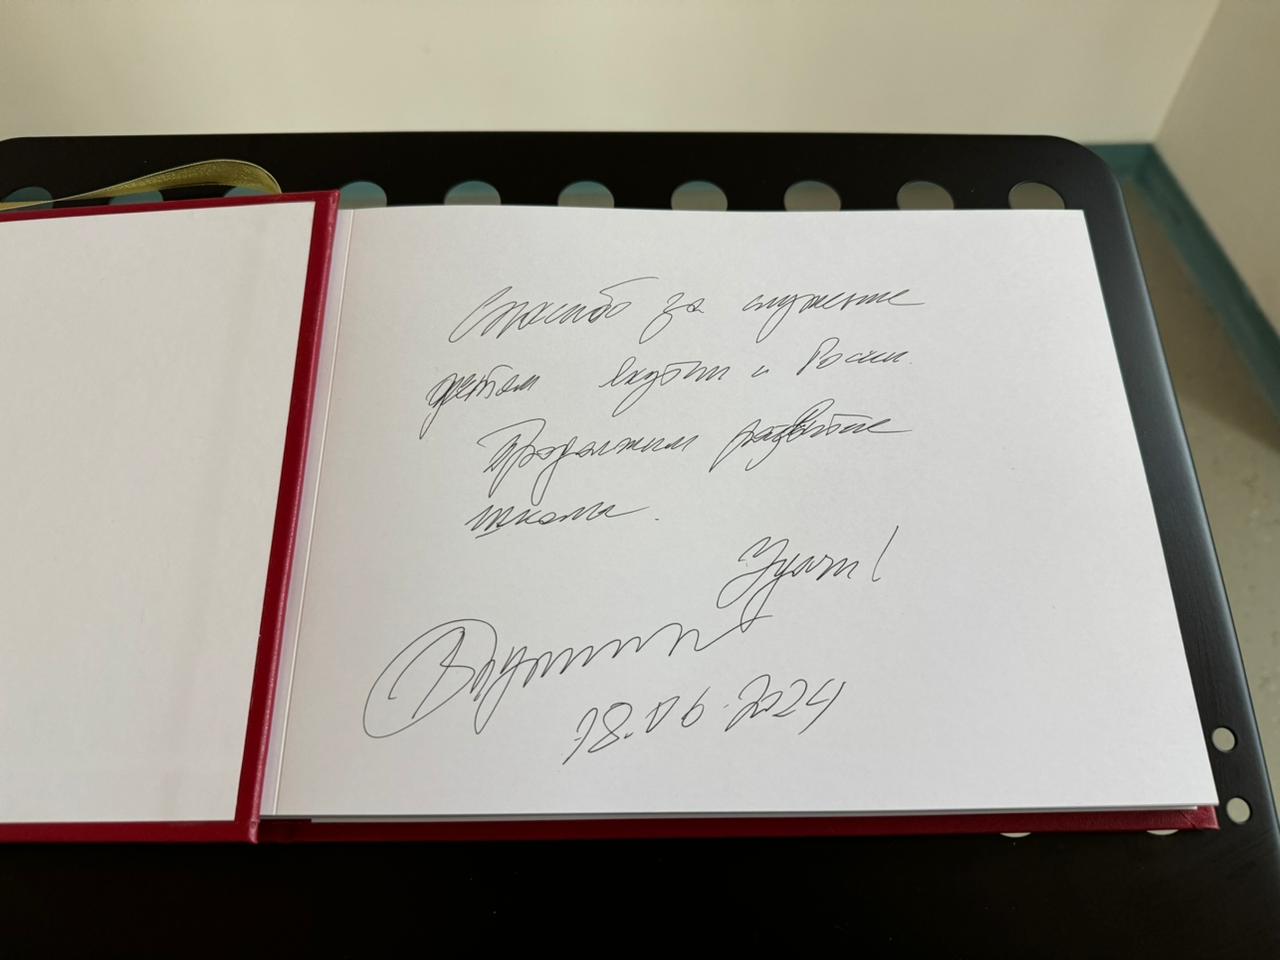 Спасибо за служение
детям Якутии и России.
Продолжим развитие
школы.
Удачи!
В.Путин
18.06.2024